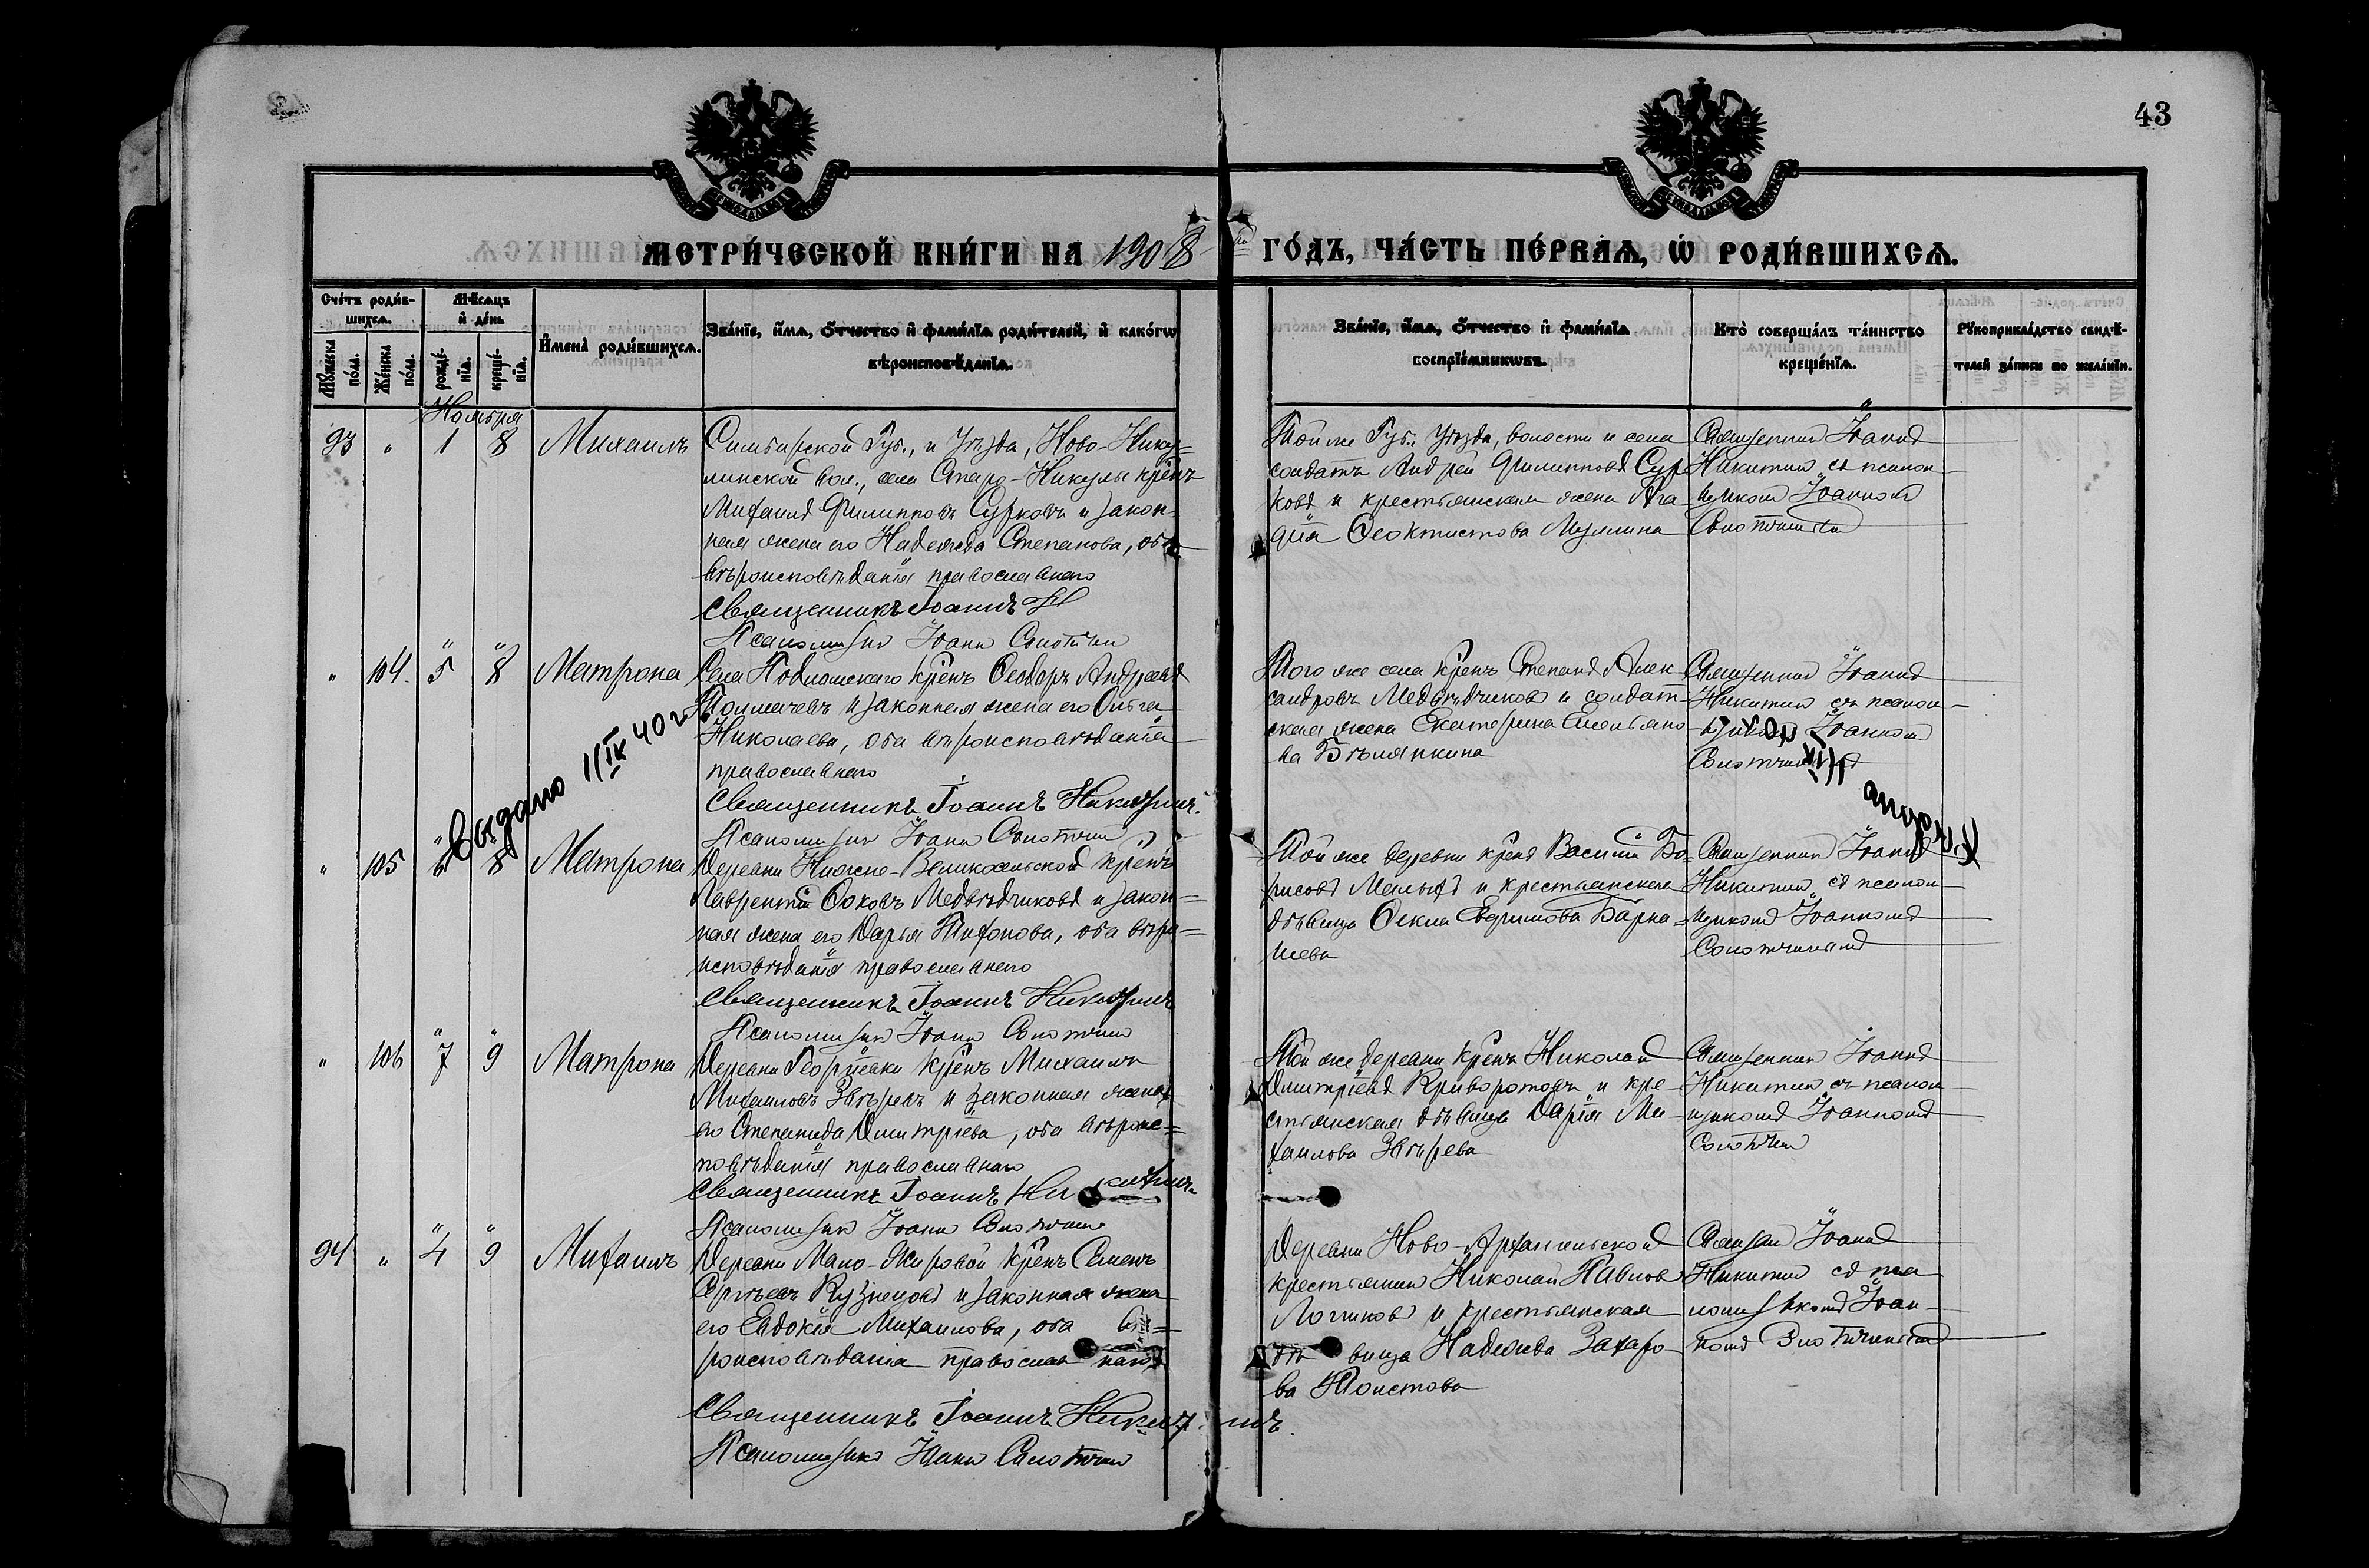 43
МЕТРИ́ЧЕСКОЙ КНИ́ГИ НА 1908 й ГО́ДЪ, ЧА́СТЬ ПЕ́РВАѦ, Ѡ҆ РОДИ́ВШИХСѦ.
Сче́тъ роди́в-
шихсѧ.
Мꙋ́жеска
по́ла.
Же́нска
по́ла.
Мѣ́сѧцъ
и҆ де́нь
рожде́-
нїѧ.
креще́-
нїѧ.
И҆мена̀ роди́вшихсѧ.
Зва́нїе, и҆́мѧ, ѻ҆́тчество и҆ фами́лїѧ роди́телей, и҆ како́гѡ
вѣроисповѣ́данїѧ.
Зва́нїе, и҆́мѧ, ѻ҆́тчество и҆ фами́лїѧ
воспрїе́мникѡвъ.
Кто̀ соверша́лъ та́инство
креще́нїѧ.
Рꙋкоприкла́дство свидѣ́-
телей за́писи по жела́нїю.
Ноября
93 " 1 8 Михаилъ
Симбирской Губ., и Уѣзда, Ново-Нику-
линской вол., села Старо-Никулы кр-нъ
Михаилъ Филипповъ Сурковъ и закон-
ная жена его Надежда Степанова, оба
вѣроисповѣданія православнаго
Священникъ Іоаннъ Н
Псаломщикъ Іоаннъ
Той же Губ., Уѣзда, волости и села
солдатъ Андрей Филипповъ Сур-
ковъ и крестьянская жена Ага-
ѳія Ѳеоктистова
Священникъ Іоаннъ
Никитинъ съ псалом-
щикомъ Іоанномъ
" 104. 5 8 Матрона
Села Подлѣснаго кр-нъ Ѳеодоръ Андреевъ
Толмачевъ и законная жена его Ольга
Николаева, оба вѣроисповѣданія
православнаго
Священникъ Іоаннъ Никитинъ.
Псаломщикъ Іоаннъ
Того же села кр-нъ Степанъ Алек-
сандровъ Медвѣдчиковъ и солдат-
ская жена Екатерина Емельяно-
ва Бѣляпкина
Священникъ Іоаннъ
Никитинъ съ псалом-
щикомъ Іоанномъ
Выдано 1/IX 40 г
" 105 6 8 Матрона
Деревни Нижне- кр-нъ
Лаврентій Ѳоковъ Медвѣдчиковъ и закон-
ная жена его Дарья Тихонова, оба вѣро-
исповѣданія православнаго
Священникъ Іоаннъ Никитинъ
Псаломщикъ Іоаннъ
Той же деревни кр-нъ Василій Бо-
рисовъ и крестьянская
дѣвица Ѳекла Евфимова
Священникъ Іоаннъ
Никитинъ съ псалом-
щикомъ Іоанномъ
" 106 7 9 Матрона
Деревни Георгіевки кр-нъ Михаилъ
Михаиловъ Звѣревъ и законная жена
его Степанида Дмитріева, оба вѣроис-
повѣданія православнаго
Священникъ Іоаннъ Никитинъ.
Псаломщикъ Іоаннъ
Той же деревни кр-нъ Николай
Дмитріевъ Криворотовъ и кре-
стьянская дѣвица Дарія Ми-
хаилова Звѣрева
Священникъ Іоаннъ
Никитинъ съ псалом-
щикомъ Іоанномъ
94 " 4 9 Михаилъ
Деревни Мало-Жировой кр-нъ Семенъ
Сергѣевъ Кузнецовъ и законная жена
его Евдокія Михаилова, оба вѣ-
роисповѣданія православнаго
Священникъ Іоаннъ Никитинъ.
Псаломщикъ Іоаннъ
Деревни Ново-Архангельской
крестьянинъ Николай Павлов
Логиновъ и крестьянская
дѣвица Надежда Захаро-
ва Толстова
Іоаннъ
Никитинъ съ пса-
ломщикомъ Іоан-
номъ